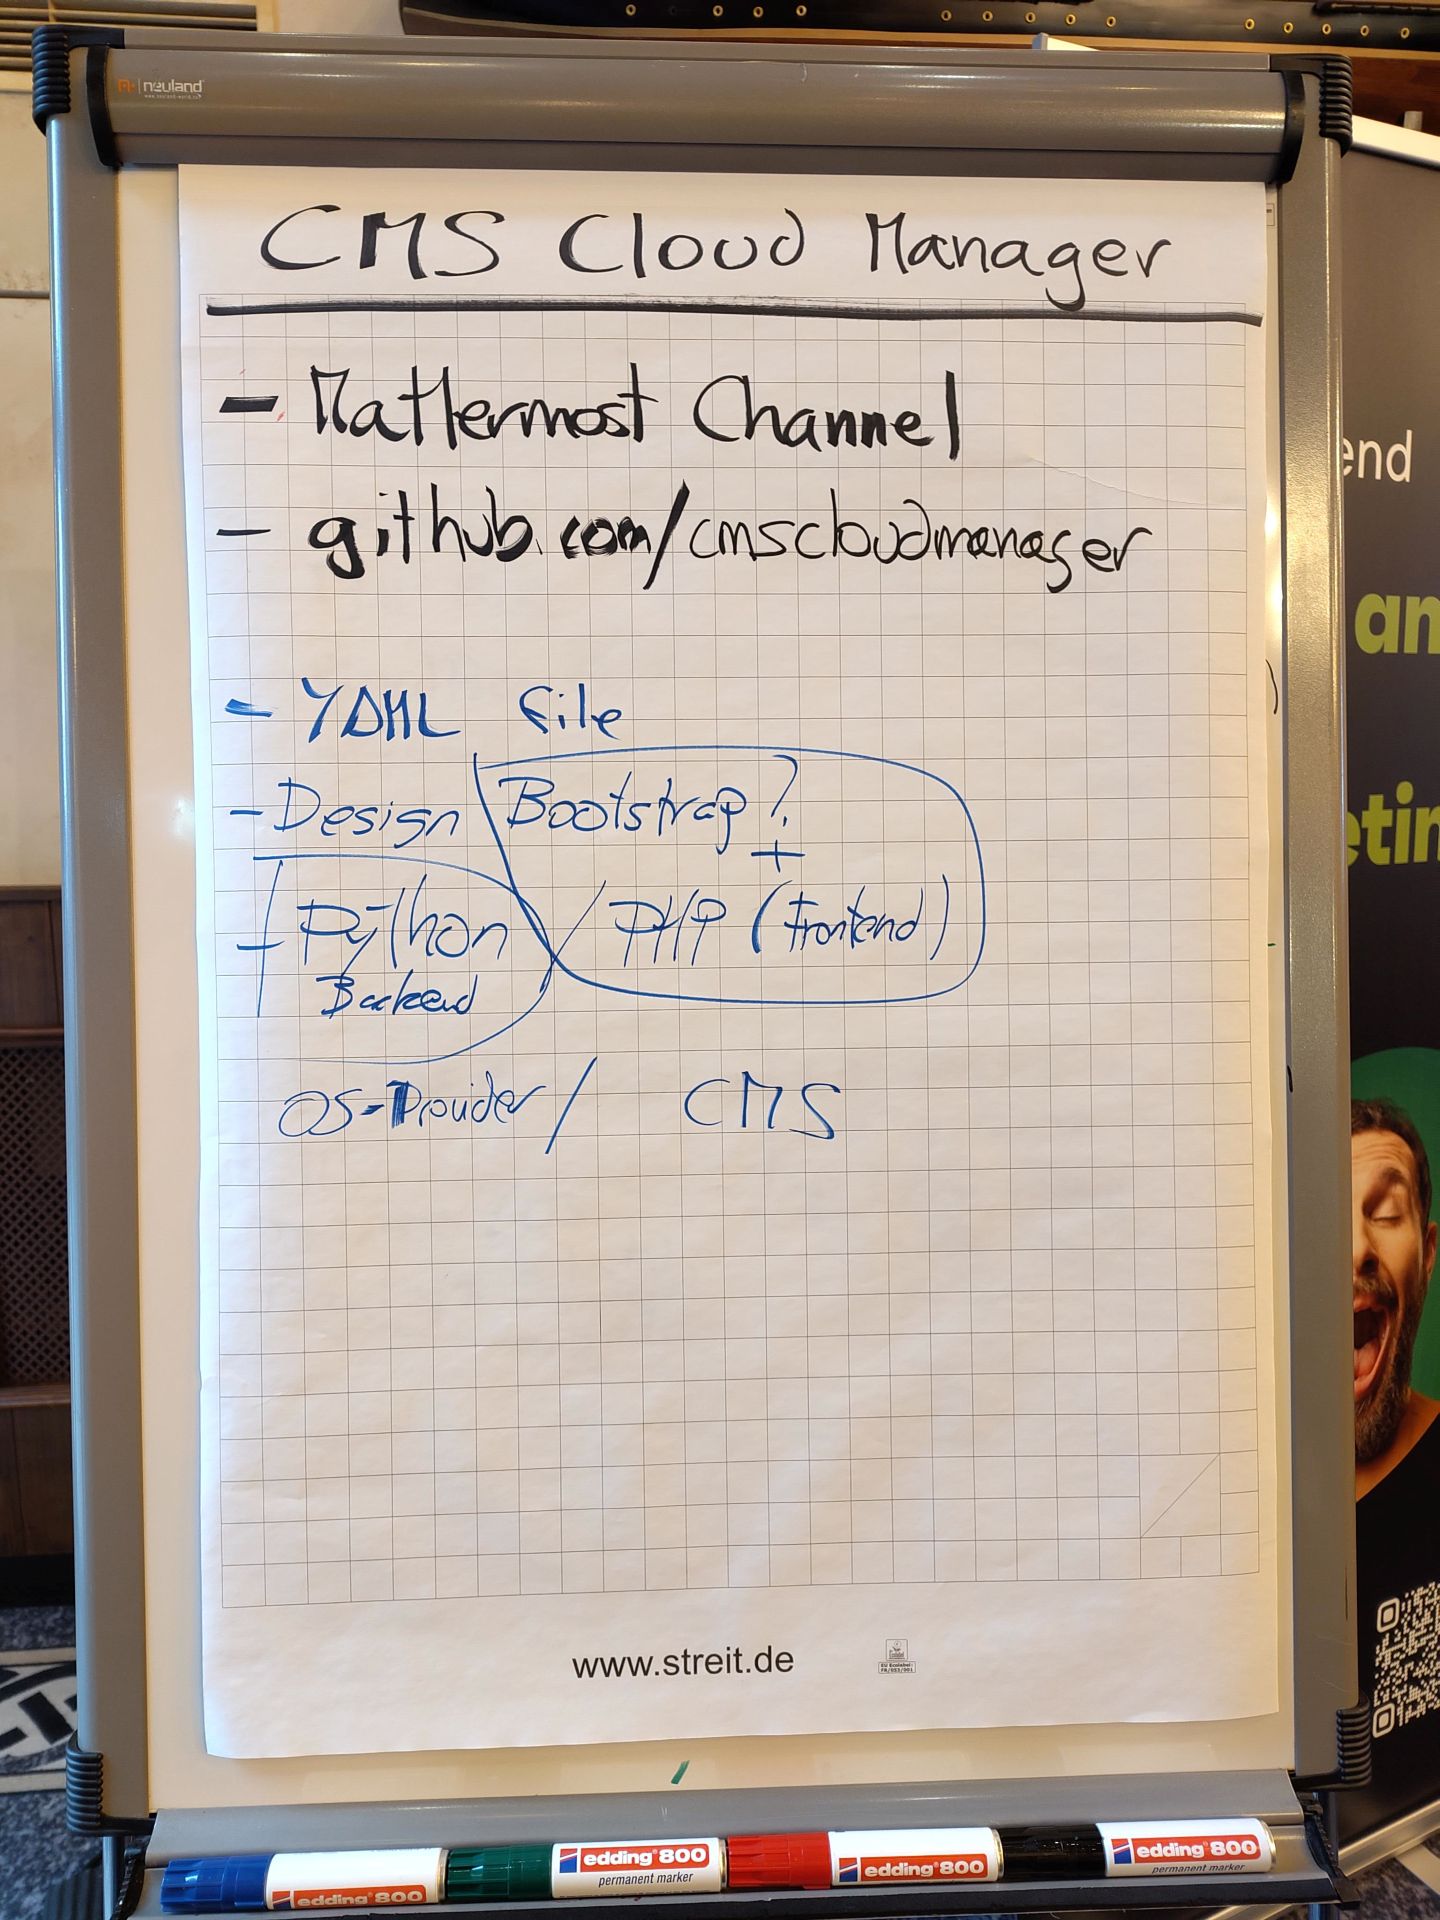 neuland
CMS Cloud Manager
- Mattermost Channel
- github.com/cmscloudmanager
- YAML File
- Design Bootstrap?
+
- Python / PHP (Frontend)
Backend
OS-Provider / CMS
www.streit.de
EU Ecolabel:
FR/053/001
end
an
etin
edding 800
edding 800
permanent marker
edding 800
edding 800
permanent marker